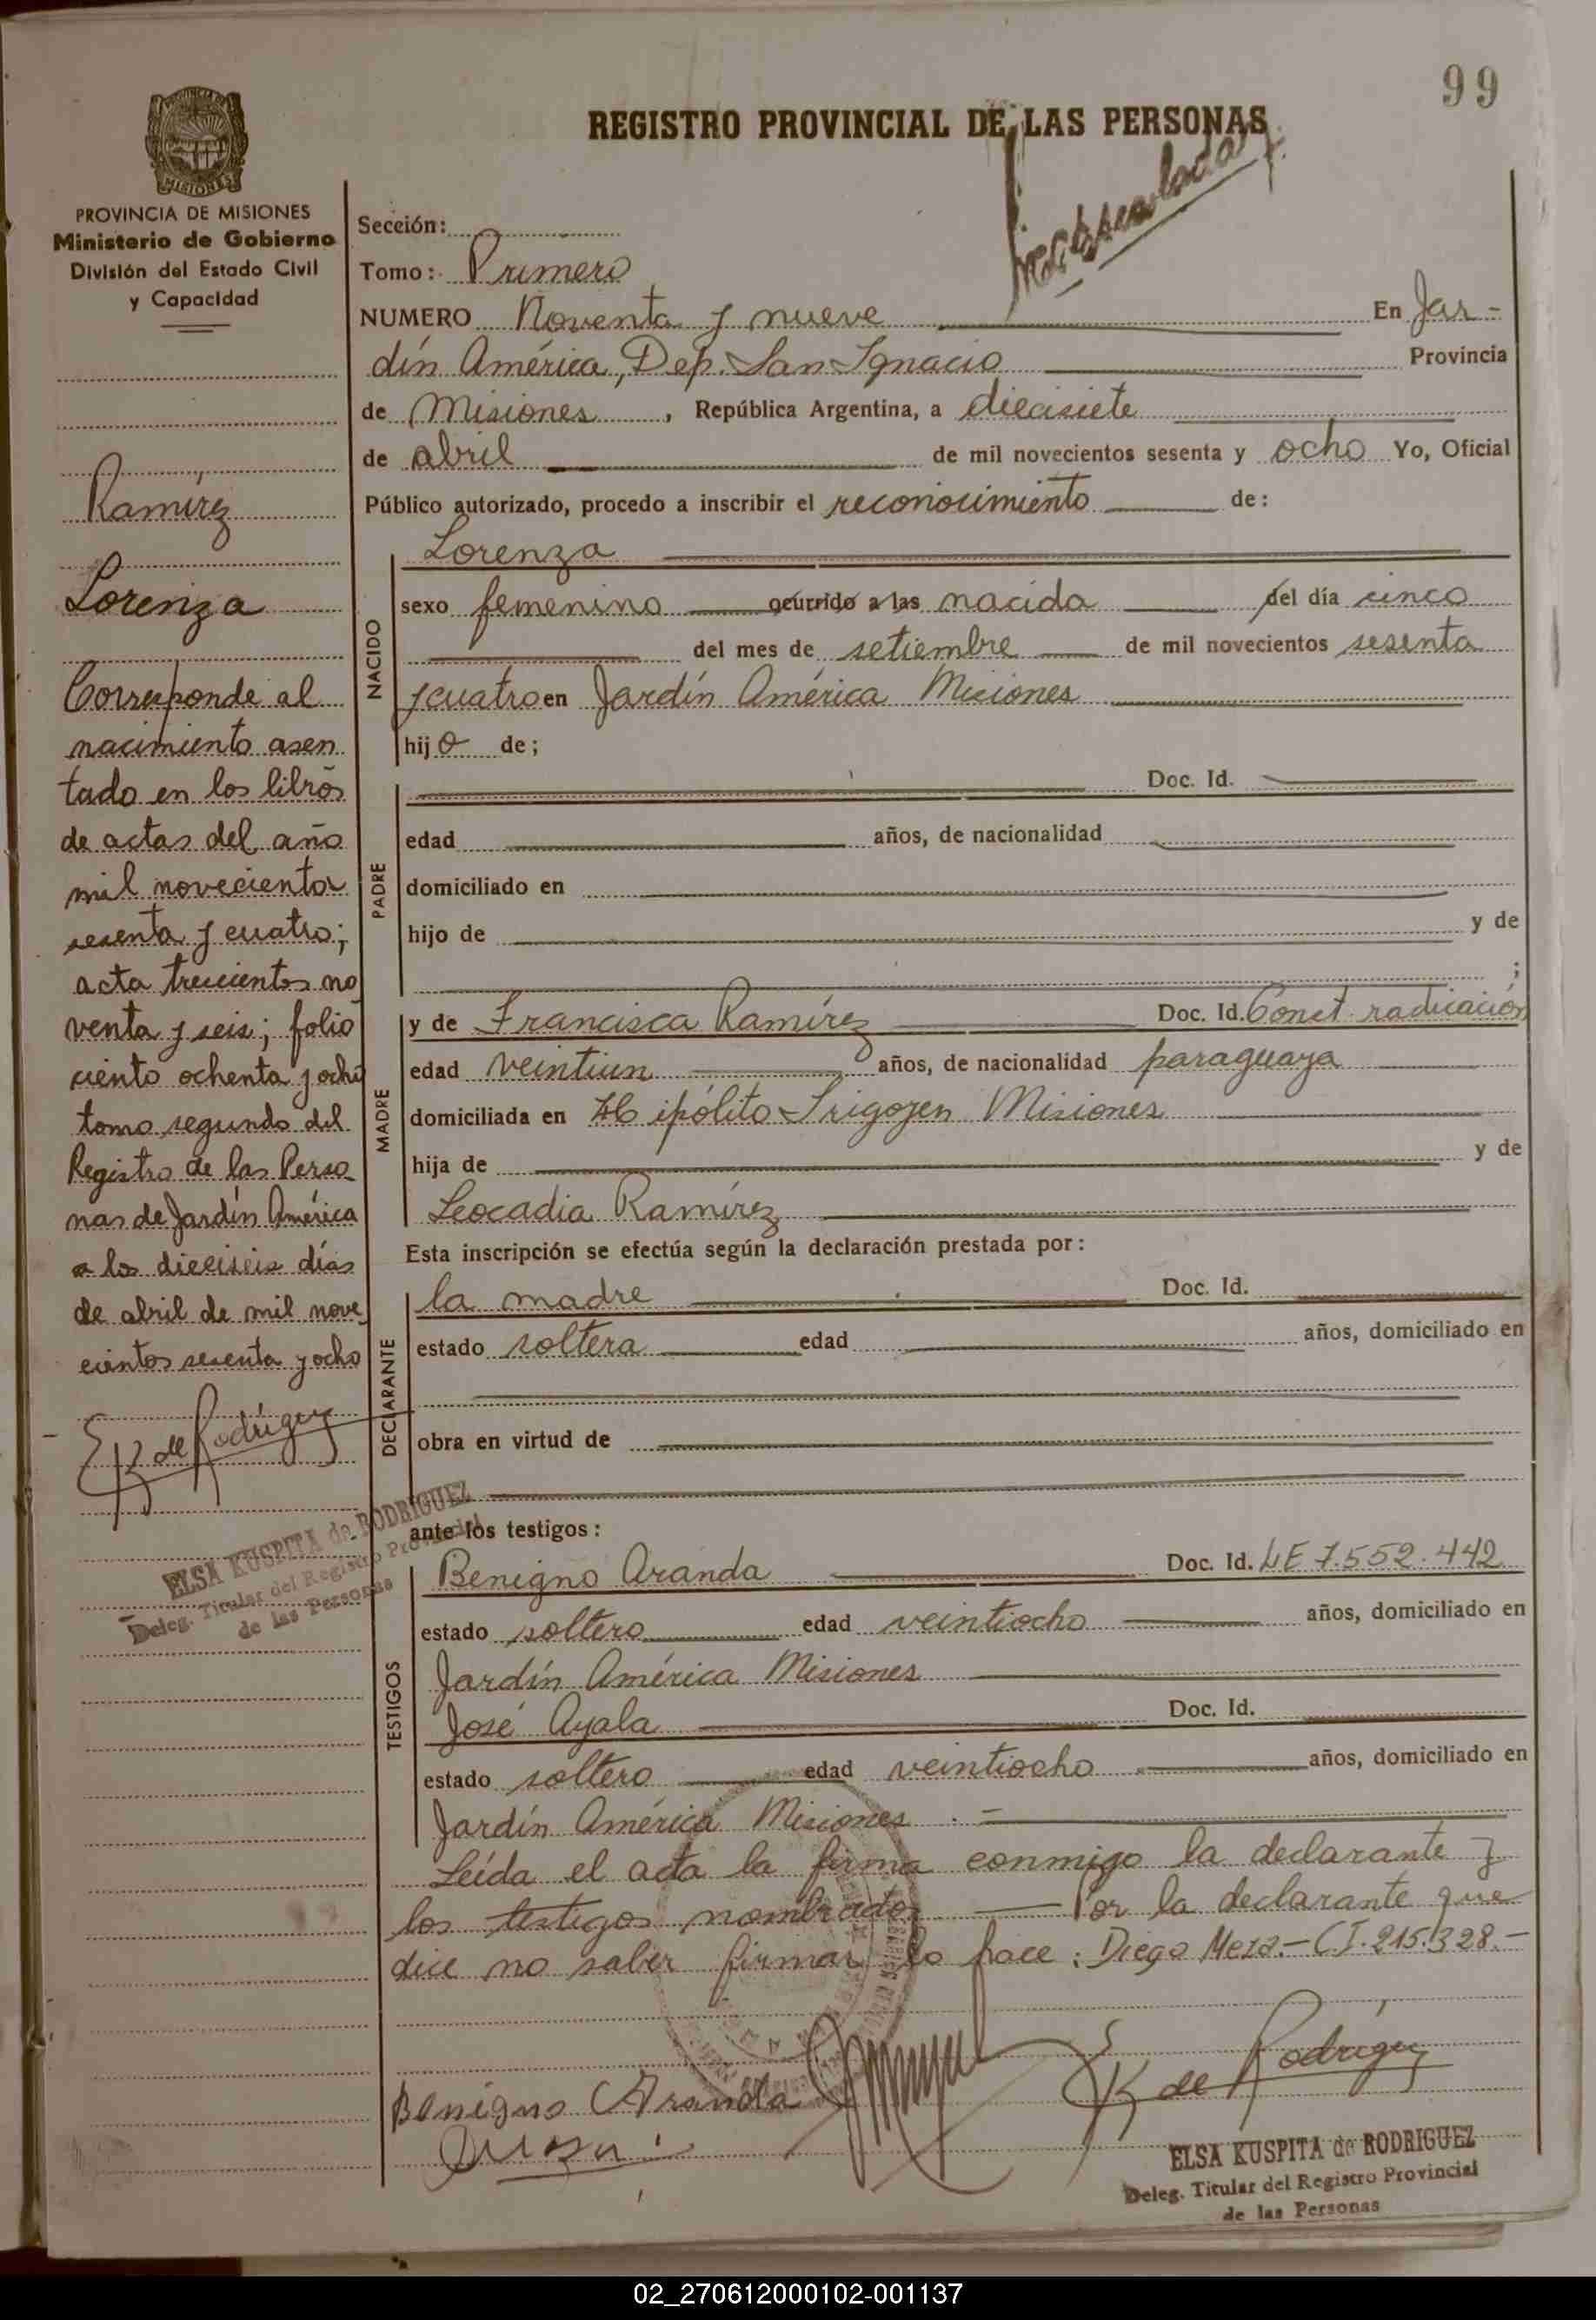 99
REGISTRO PROVINCIAL DE LAS PERSONAS
MISIONES
PROVINCIA DE MISIONES
Ministerio de Gobierno
División del Estado Civil
y Capacidad
Ramírez
Lorenza
Corresponde al
nacimiento asen
tado en los libros
de actas del año
mil novecientos
sesenta y cuatro;
acta trescientos no
venta y seis; folio
ciento ochenta y ocho
tomo segundo del
Registro de las Perso
nas de Jardín América
a los dieciseis días
de abril de mil nove
cientos sesenta y ocho
EK de Rodríguez
ELSA KUSPITA de RODRIGUEZ
Deleg. Titular del Registro Provincial
de las Personas
Sección:
Tomo: Primero
NUMERO Noventa y nueve En Jar-
dín América, Dep. San Ignacio Provincia
de Misiones, República Argentina, a diecisiete
de abril de mil novecientos sesenta y ocho Yo, Oficial
Público autorizado, procedo a inscribir el reconocimiento de:
NACIDO
Lorenza
sexo femenino ocurrido a las nacida del día cinco
del mes de setiembre de mil novecientos sesenta
y cuatro en Jardín América Misiones
hij a de;
PADRE
Doc. Id.
edad años, de nacionalidad
domiciliado en
hijo de y de
;
MADRE
y de Francisca Ramírez Doc. Id. Const. radicación
edad veintiun años, de nacionalidad paraguaya
domiciliada en Hipólito Irigoyen Misiones
hija de y de
Leocadia Ramírez
Esta inscripción se efectúa según la declaración prestada por:
DECLARANTE
la madre Doc. Id.
estado soltera edad años, domiciliado en
obra en virtud de
ante los testigos:
TESTIGOS
Benigno Aranda Doc. Id. LE 7.552.442
estado soltero edad veintiocho años, domiciliado en
Jardín América Misiones
José Ayala Doc. Id.
estado soltero edad veintiocho años, domiciliado en
Jardín América Misiones.=
Leída el acta la firma conmigo la declarante y
los testigos nombrados — Por la declarante que
dice no saber firmar lo hace: Diego Meza.- C.I. 215.328.-
Benigno Aranda
EK de Rodríguez
ELSA KUSPITA de RODRIGUEZ
Deleg. Titular del Registro Provincial
de las Personas
02_270612000102-001137